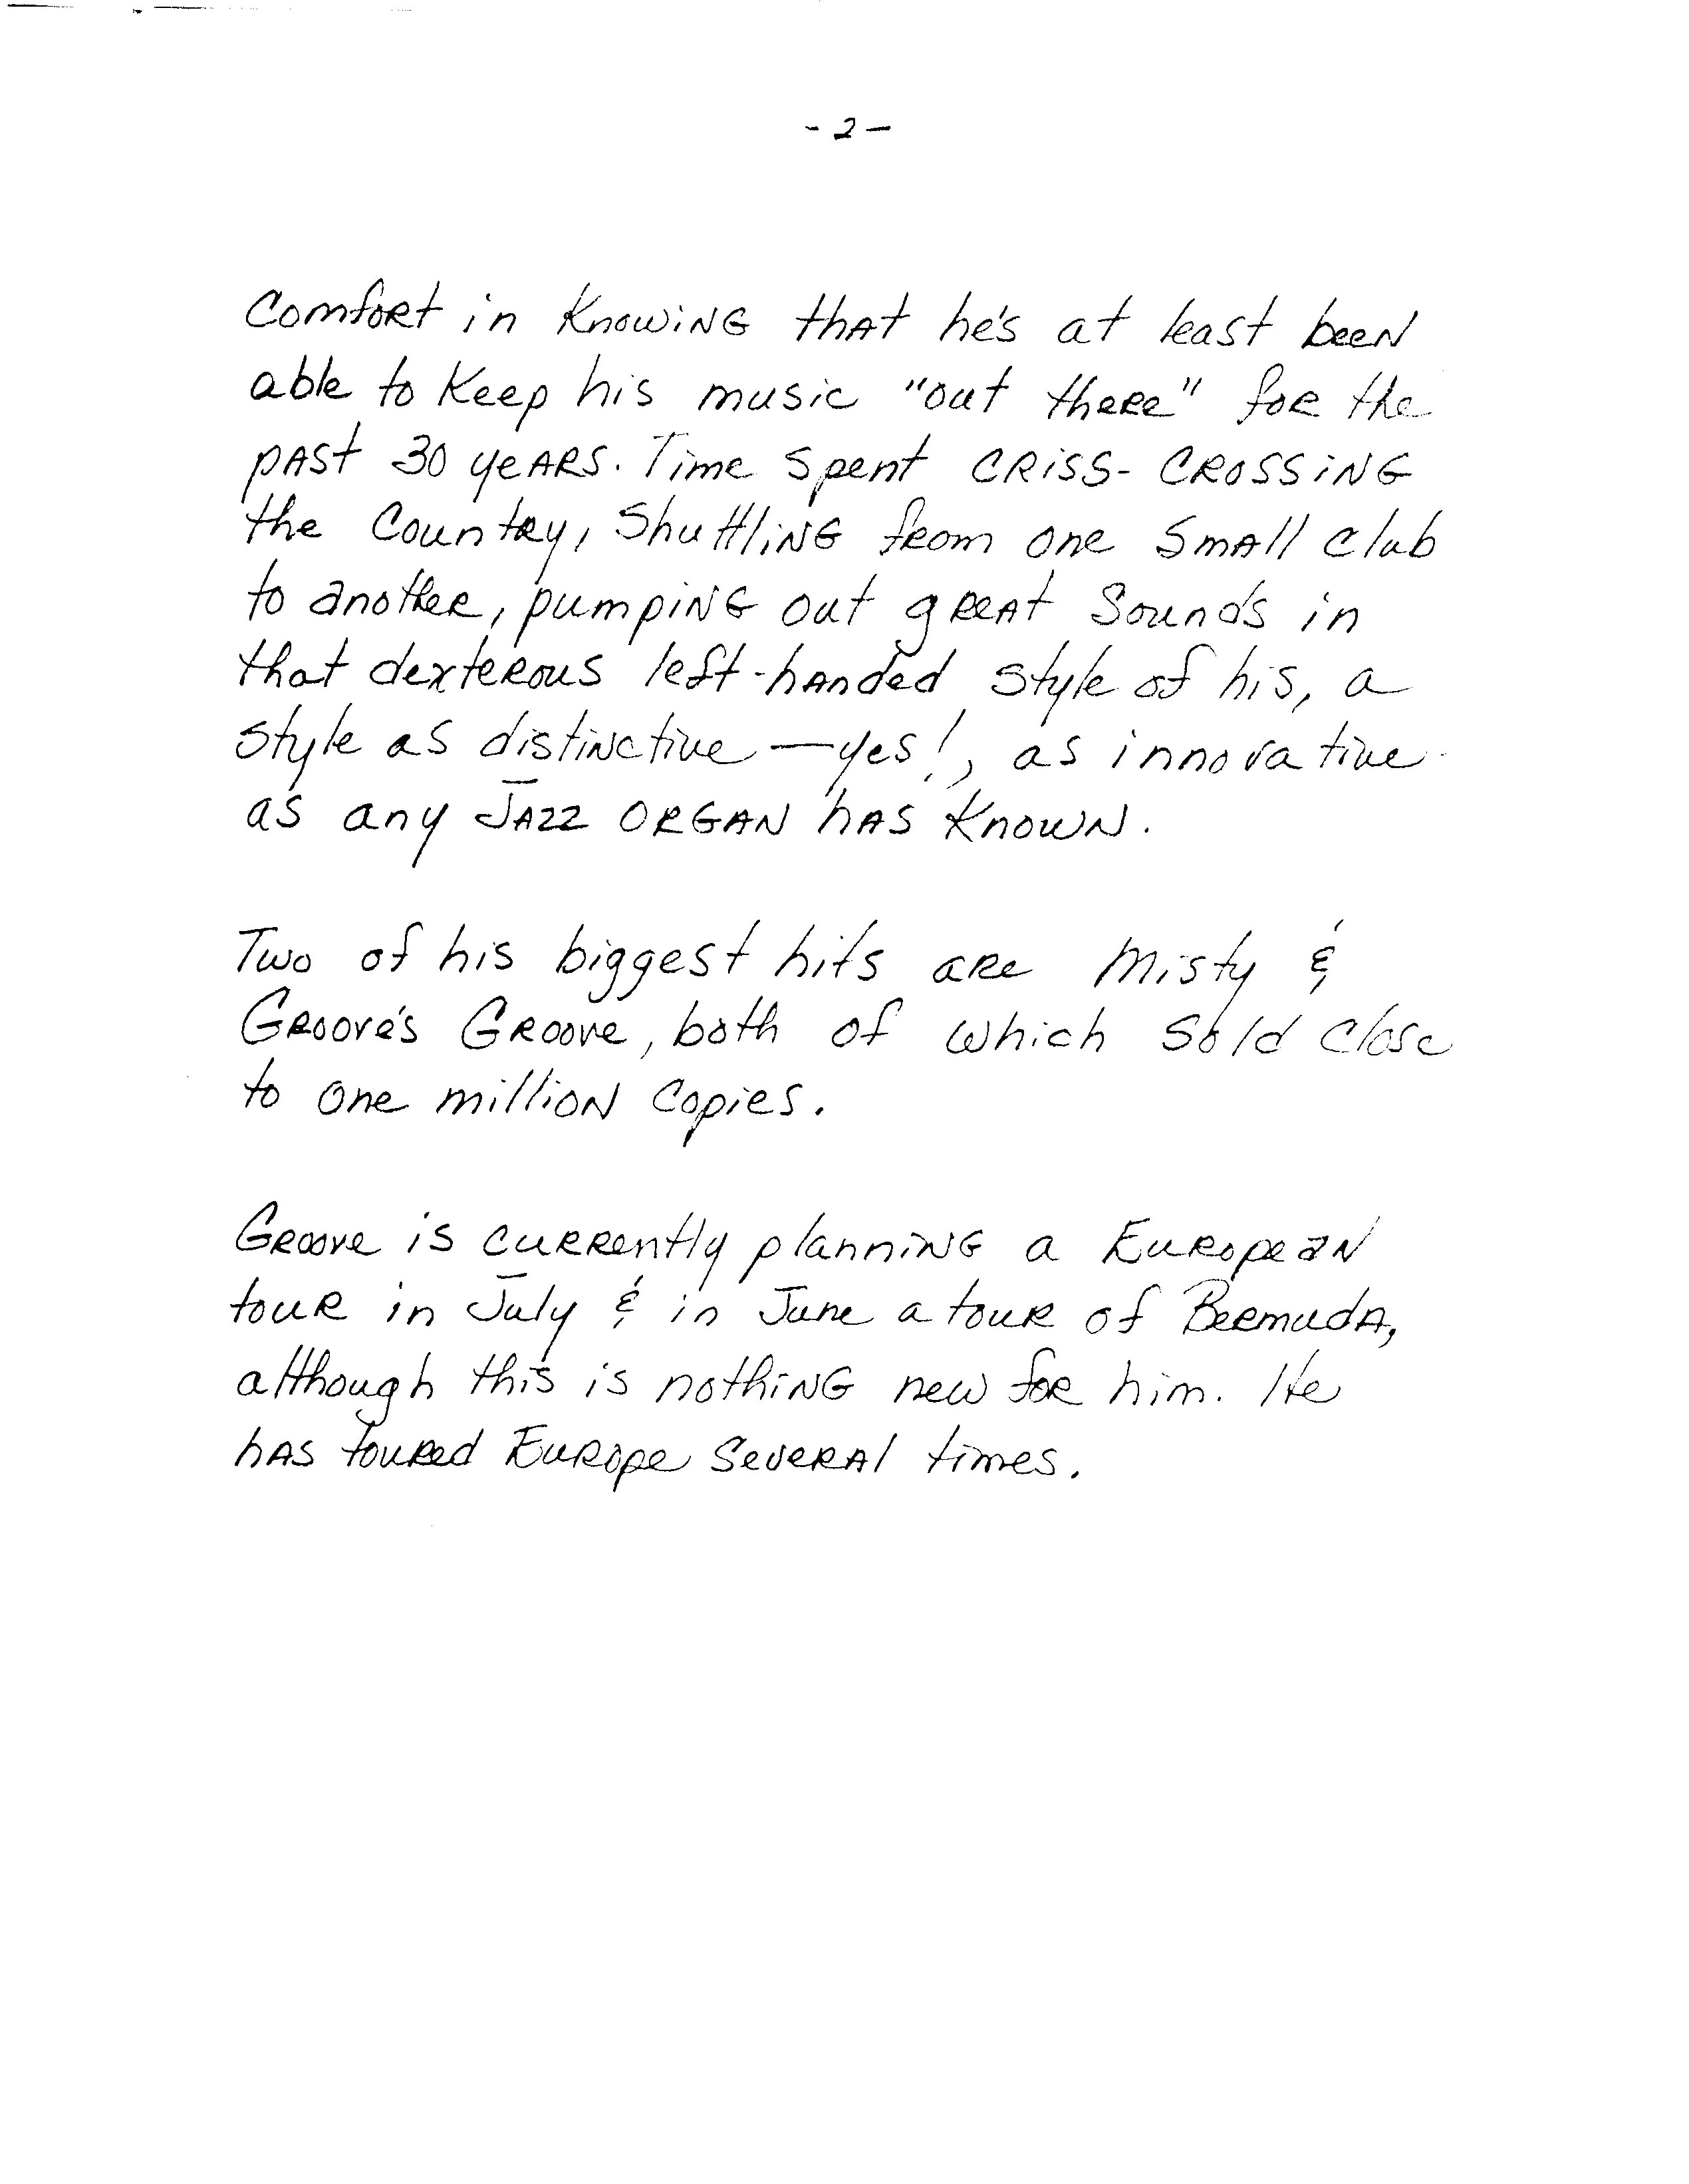 - 2 -
Comfort in Knowing that he's at least been
able to Keep his music "out there" for the
past 30 years. Time spent criss-crossing
the Country, Shuttling from one Small club
to another, pumping out great Sounds in
that dexterous left-handed style of his, a
style as distinctive — yes!, as innovative
as any Jazz organ has Known.
Two of his biggest hits are Misty &
Groove's Groove, both of which Sold Close
to one million Copies.
Groove is currently planning a European
tour in July & in June a tour of Bermuda,
although this is nothing new for him. He
has toured Europe Several times.